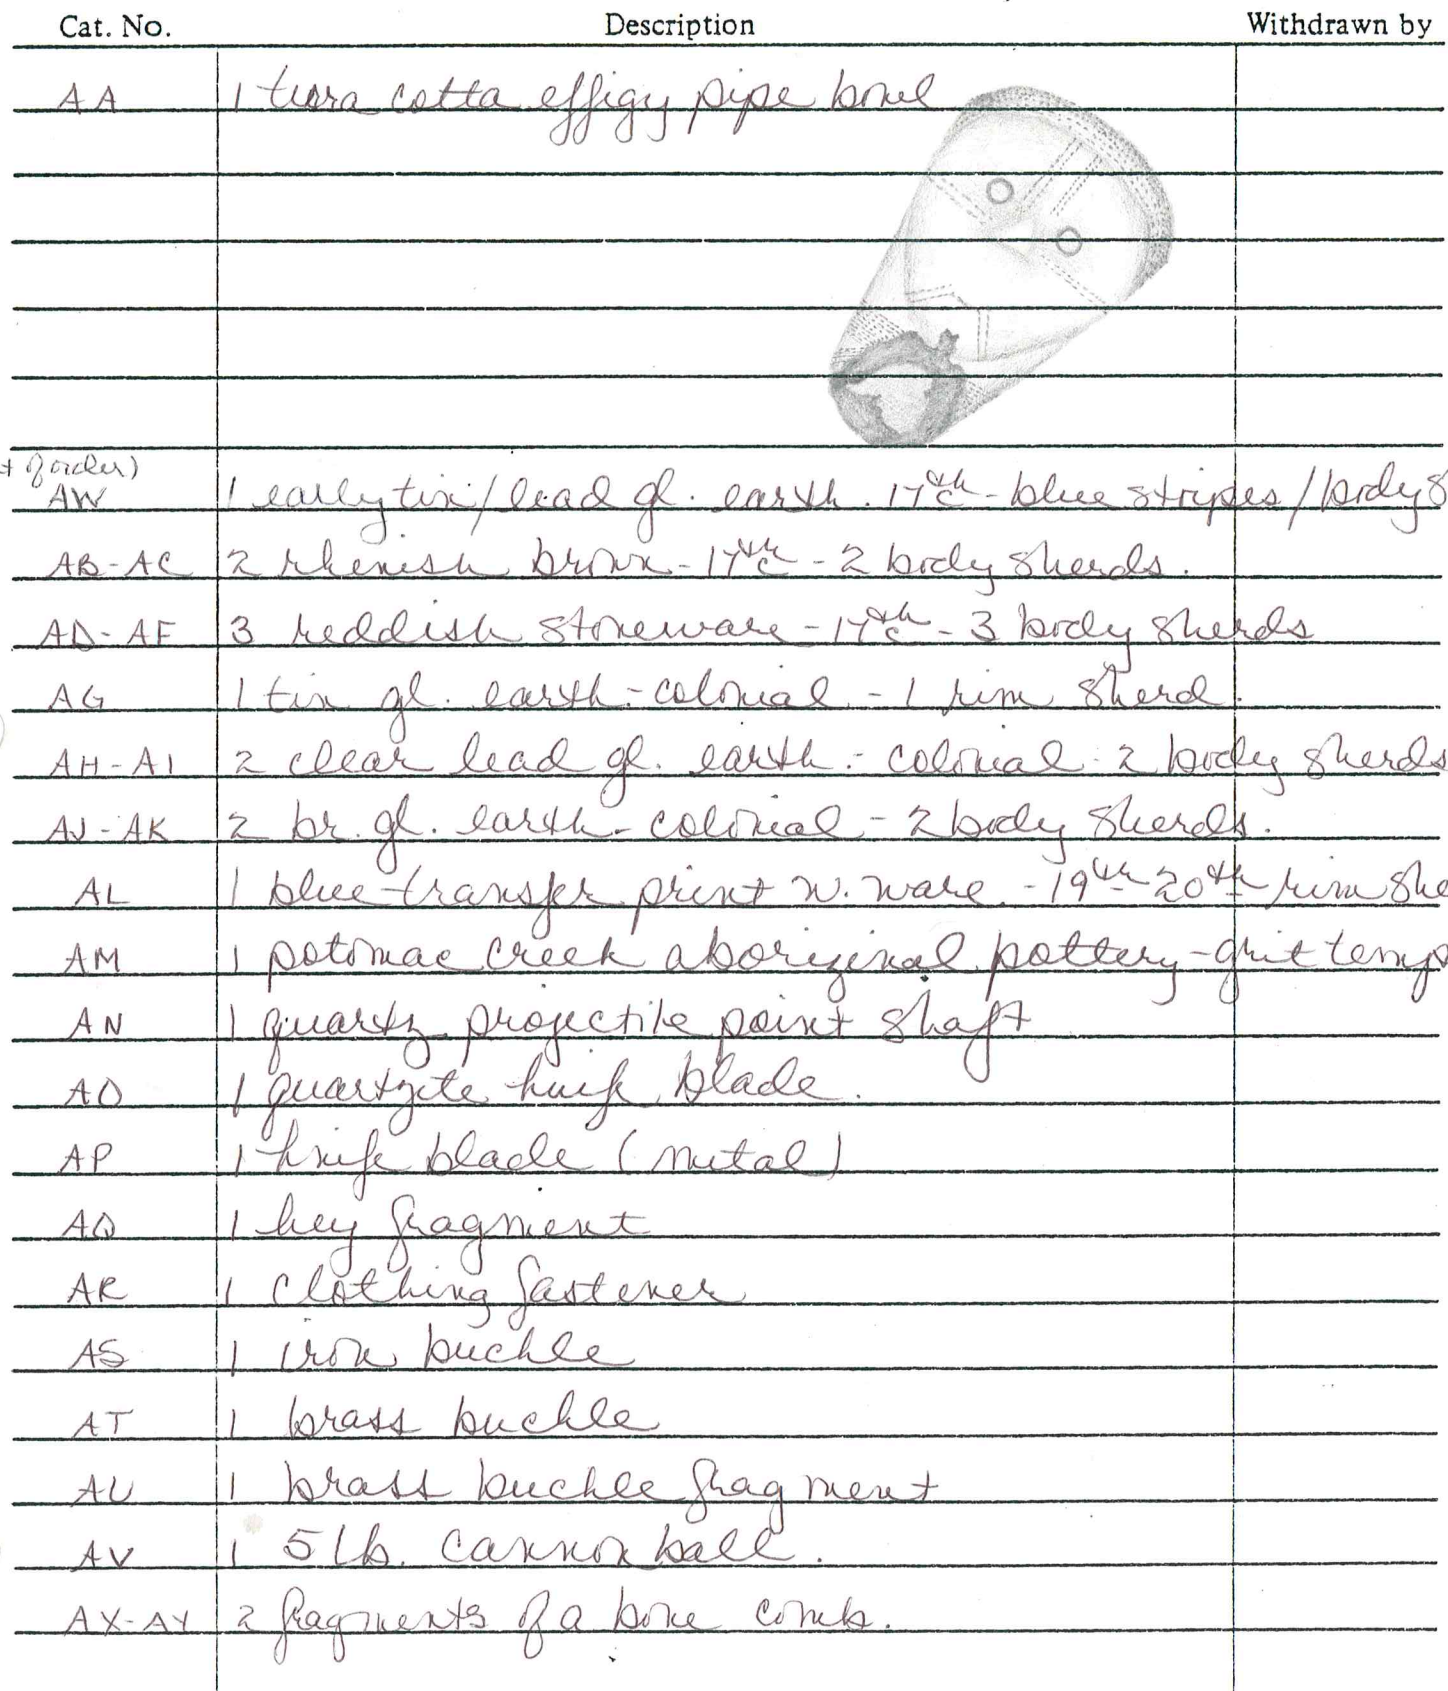 Cat. No. Description Withdrawn by
AA 1 terra cotta effigy pipe bowl
of order)
AW 1 early tin/lead gl. earth. 17th c - blue stripes / body s
AB-AC 2 rhenish brown - 17th c - 2 body sherds.
AD-AF 3 reddish stoneware - 17th c - 3 body sherds
AG 1 tin gl. earth - colonial - 1 rim sherd.
AH-AI 2 clear lead gl. earth. - colonial - 2 body sherds
AJ-AK 2 br. gl. earth - colonial - 2 body sherds.
AL 1 blue transfer print w. ware. - 19th 20th rim she
AM 1 potomac creek aboriginal pottery - grit temp
AN 1 quartz projectile point shaft
AO 1 quartzite knife blade.
AP 1 knife blade (metal)
AQ 1 key fragment
AR 1 clothing fastener
AS 1 iron buckle
AT 1 brass buckle
AU 1 brass buckle fragment
AV 1 5 lb. cannon ball.
AX-AY 2 fragments of a bone comb.